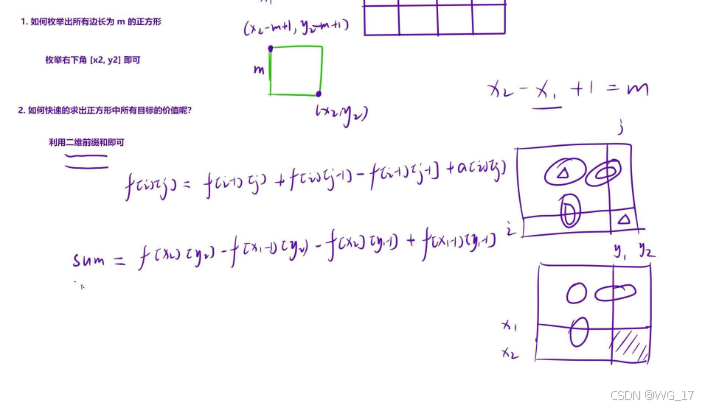 1. 如何枚举出所有边长为 m 的正方形
(x₂-m+1, y₂-m+1)
枚举右下角 [x2, y2] 即可
m
(x₂, y₂)
x₂ - x₁ + 1 = m
2. 如何快速的求出正方形中所有目标的价值呢?
利用二维前缀和即可
j
f[i][j] = f[i-1][j] + f[i][j-1] - f[i-1][j-1] + a[i][j]
i
sum = f[x₂][y₂] - f[x₁-1][y₂] - f[x₂][y₁-1] + f[x₁-1][y₁-1]
y₁ y₂
x₁
x₂
CSDN @WG_17